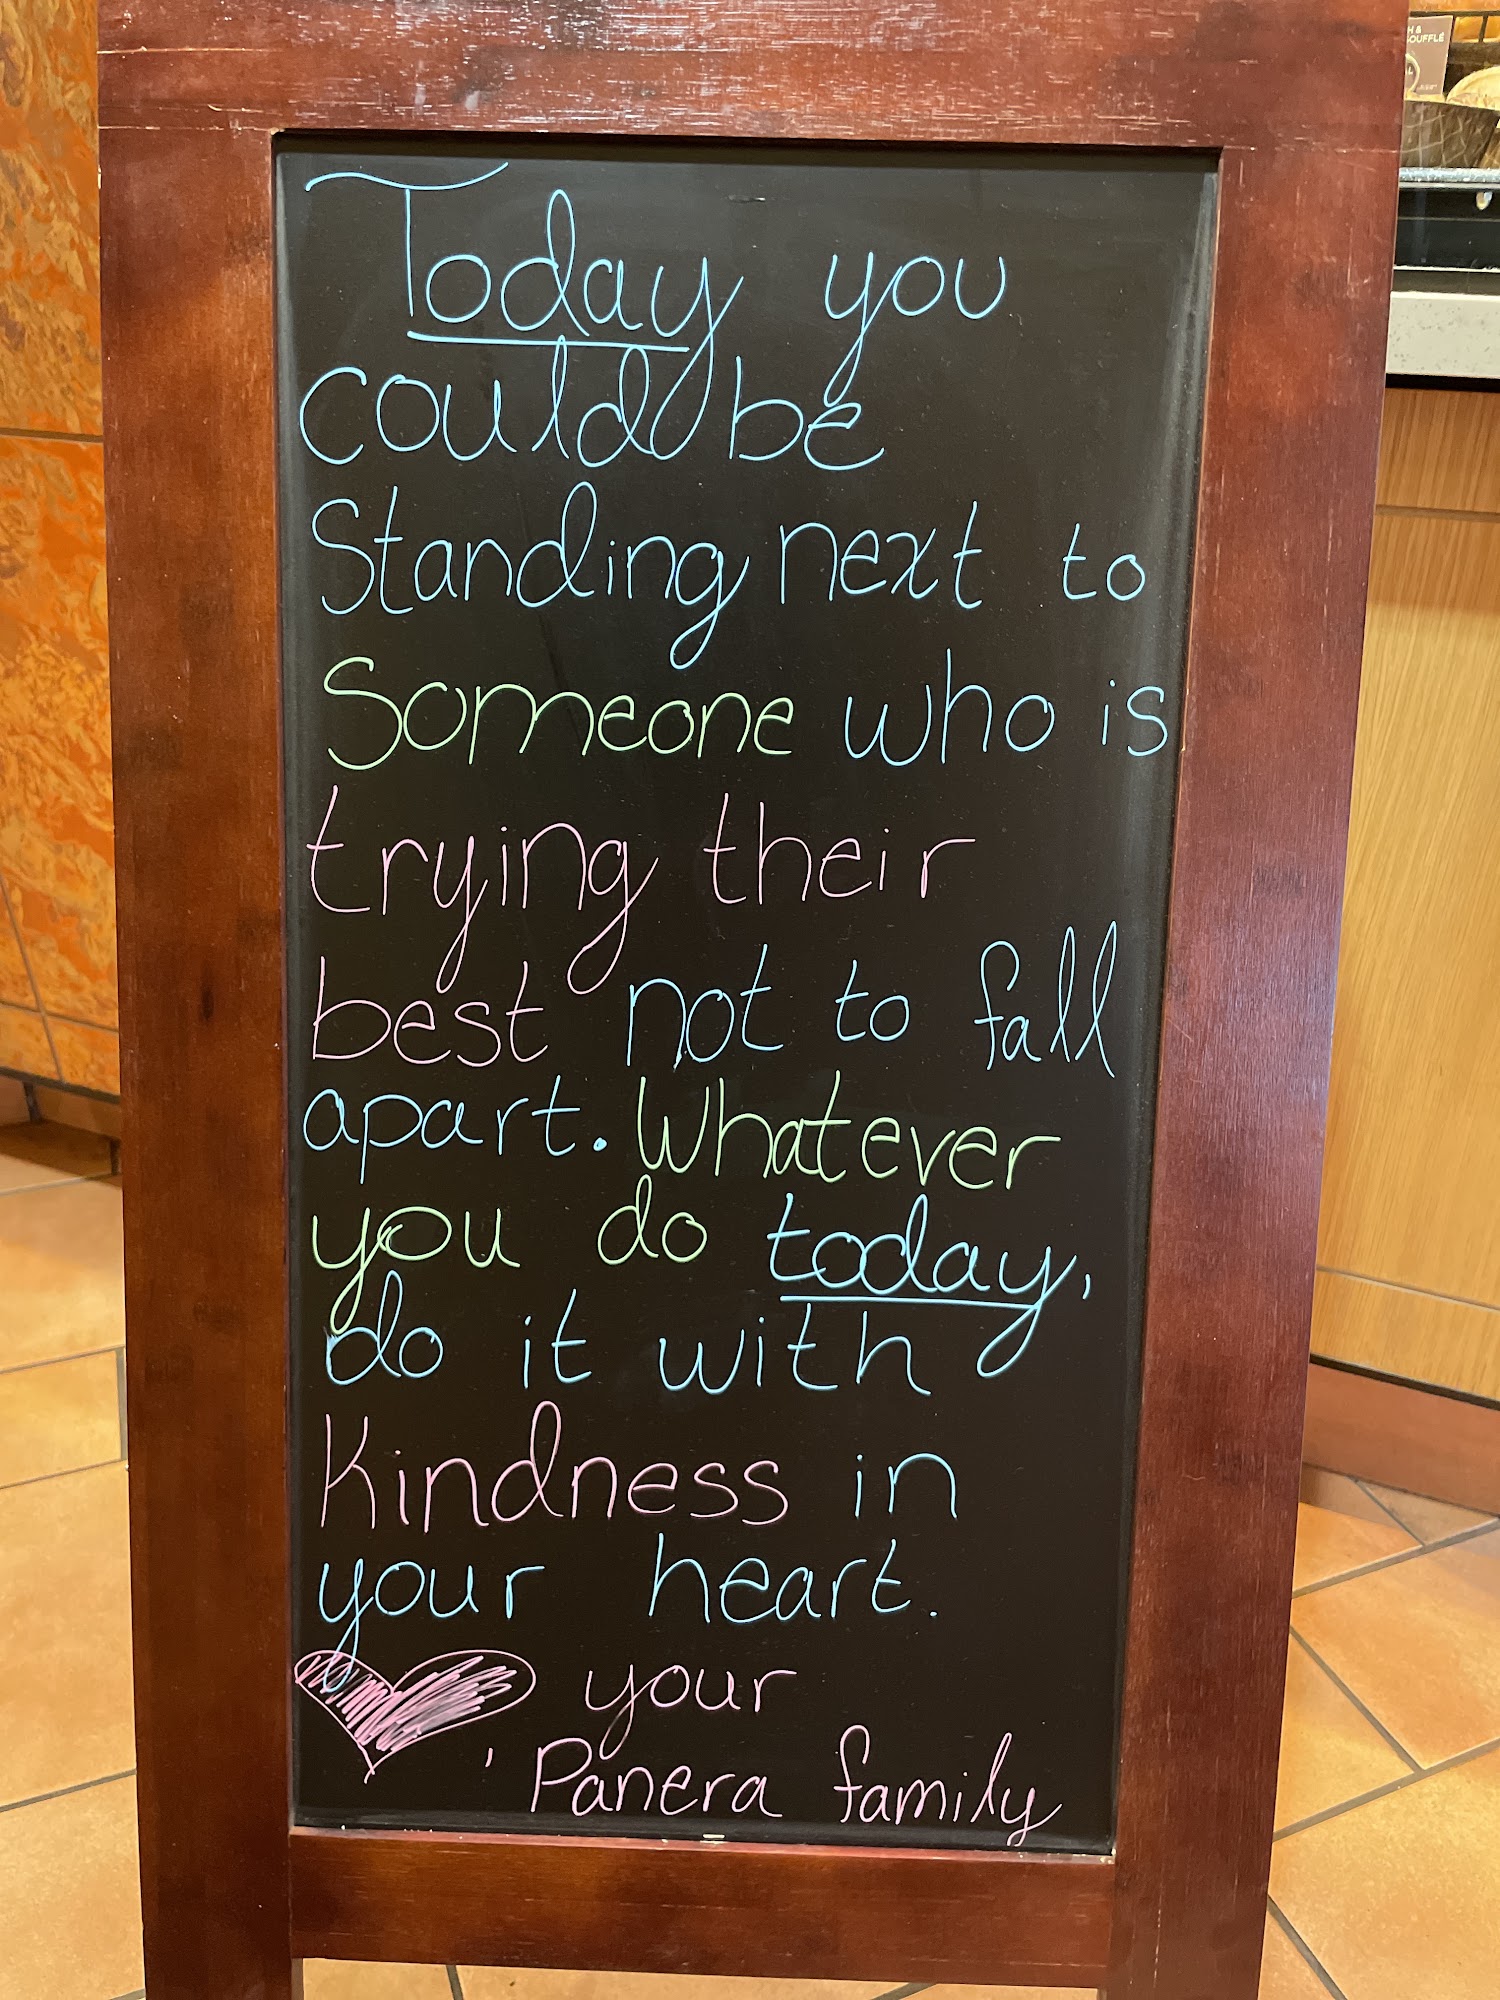 Today you
could be
Standing next to
Someone who is
trying their
best not to fall
apart. Whatever
you do today,
do it with
Kindness in
your heart.
your
Panera family